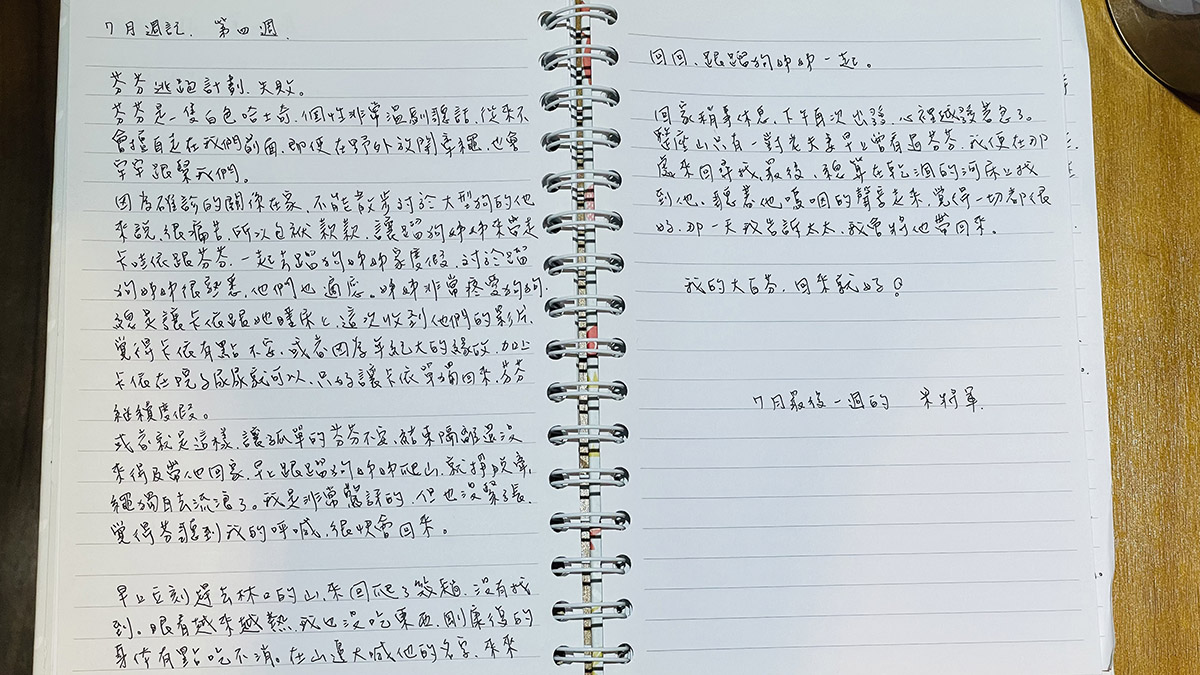 7月週記. 第四週.
芬芬逃跑計劃、失敗。
芬芬是一隻白色哈士奇.個性非常溫馴聽話.從來不
會擅自走在我們前面.即便在野外放開牽繩.也會
牢牢跟緊我們。
因為確診的關係在家.不能散步對於大型狗的他
來說.很痛苦.所以包袱款款.讓蹓狗姊姊來帶走
卡哇依跟芬芬.一起去蹓狗姊姊家度假.對於蹓
狗姊姊很熟悉.他們也適應。姊姊非常疼愛狗狗.
總是讓卡依跟她睡床上.這次收到他們的影片.
覺得卡依有點不安.或者因為年紀大的緣故.加上
卡依在院子尿尿就可以.只好讓卡依單獨回來.芬芬
繼續度假。
或者就是這樣.讓孤單的芬芬不安.結束隔離還沒
來得及帶他回家.早上跟蹓狗姊姊爬山.就掙脫牽
繩獨自去流浪了。我是非常驚訝的.但也沒緊張.
覺得芬聽到我的呼喊.很快會回來。
早上立刻趕去林口的山.來回爬了幾趟.沒有找
到。眼看越來越熱.我也沒吃東西.剛康復的
身体有點吃不消。在山邊大喊他的名字.來來
回回.跟蹓狗姊姊一起。
回家稍事休息.下午再次出發.心裡越發著急了。
整座山只有一對老夫妻早上曾看過芬芬.我便在那
處來回尋找.最後.總算在乾涸的河床上找
到他.聽著他嗚咽的聲音走來.覺得一切都很
好.那一天我告訴太太.我會將他帶回來。
我的大白芬.回來就好。
7月最後一週的 米將軍.